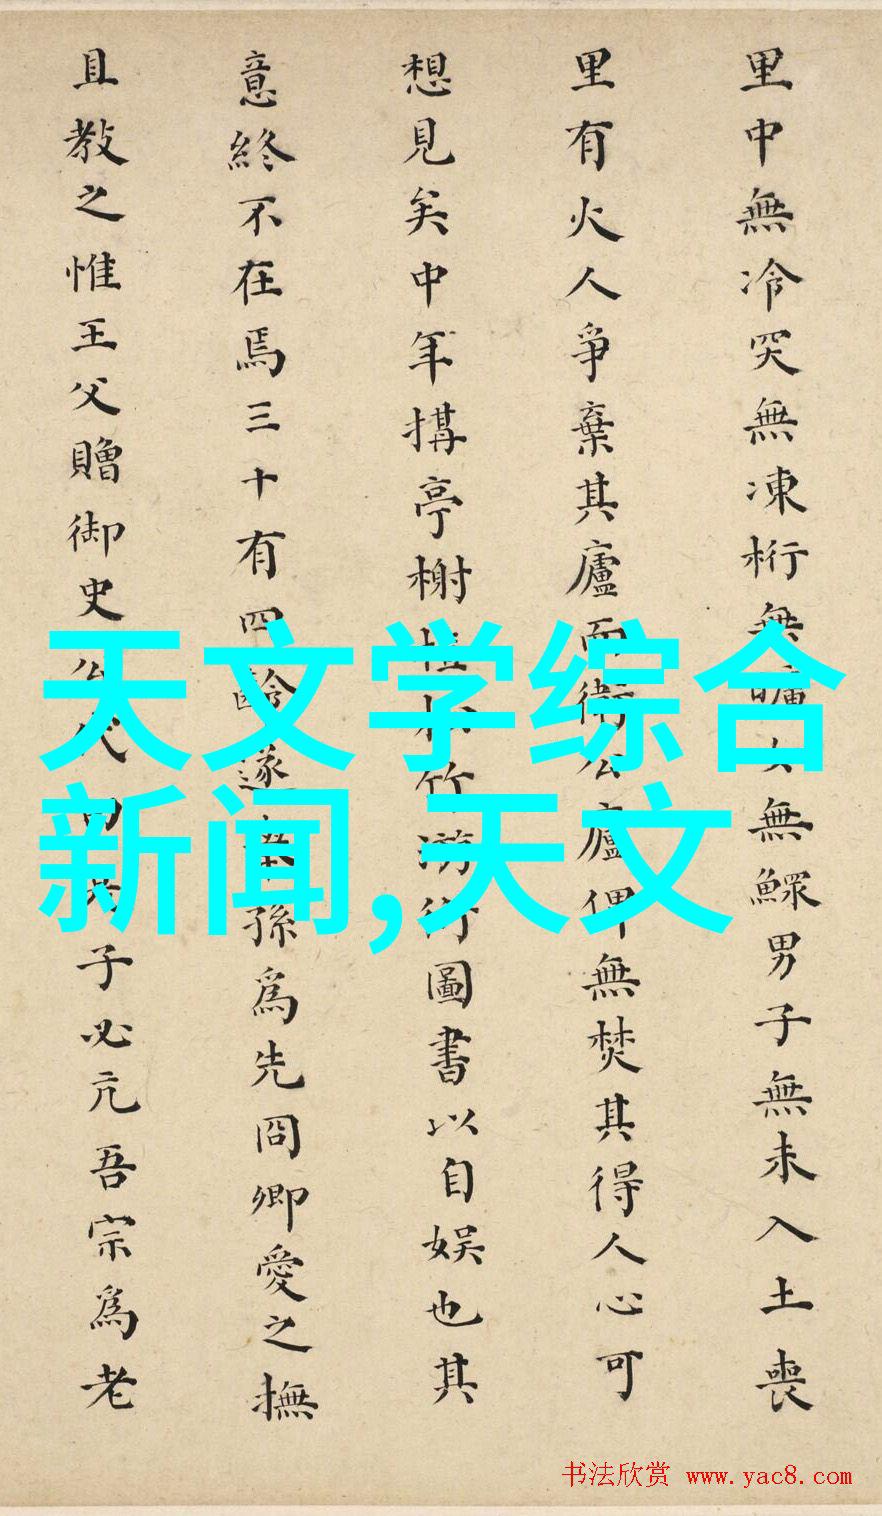 里中無冷突無凍桁無曠女無鰥男子無未入土喪
里有火人爭棄其廬而衛公廬俾無焚其得人心可
想見矣中年搆亭榭植松竹游衍圖書以自娛也其
意終不在焉三十有四齡遂舉孫爲先冏卿愛之撫
且教之惟王父贈御史公代子必亢吾宗爲老
天文学综合
新闻,天文
书法欣赏 www.yac8.com